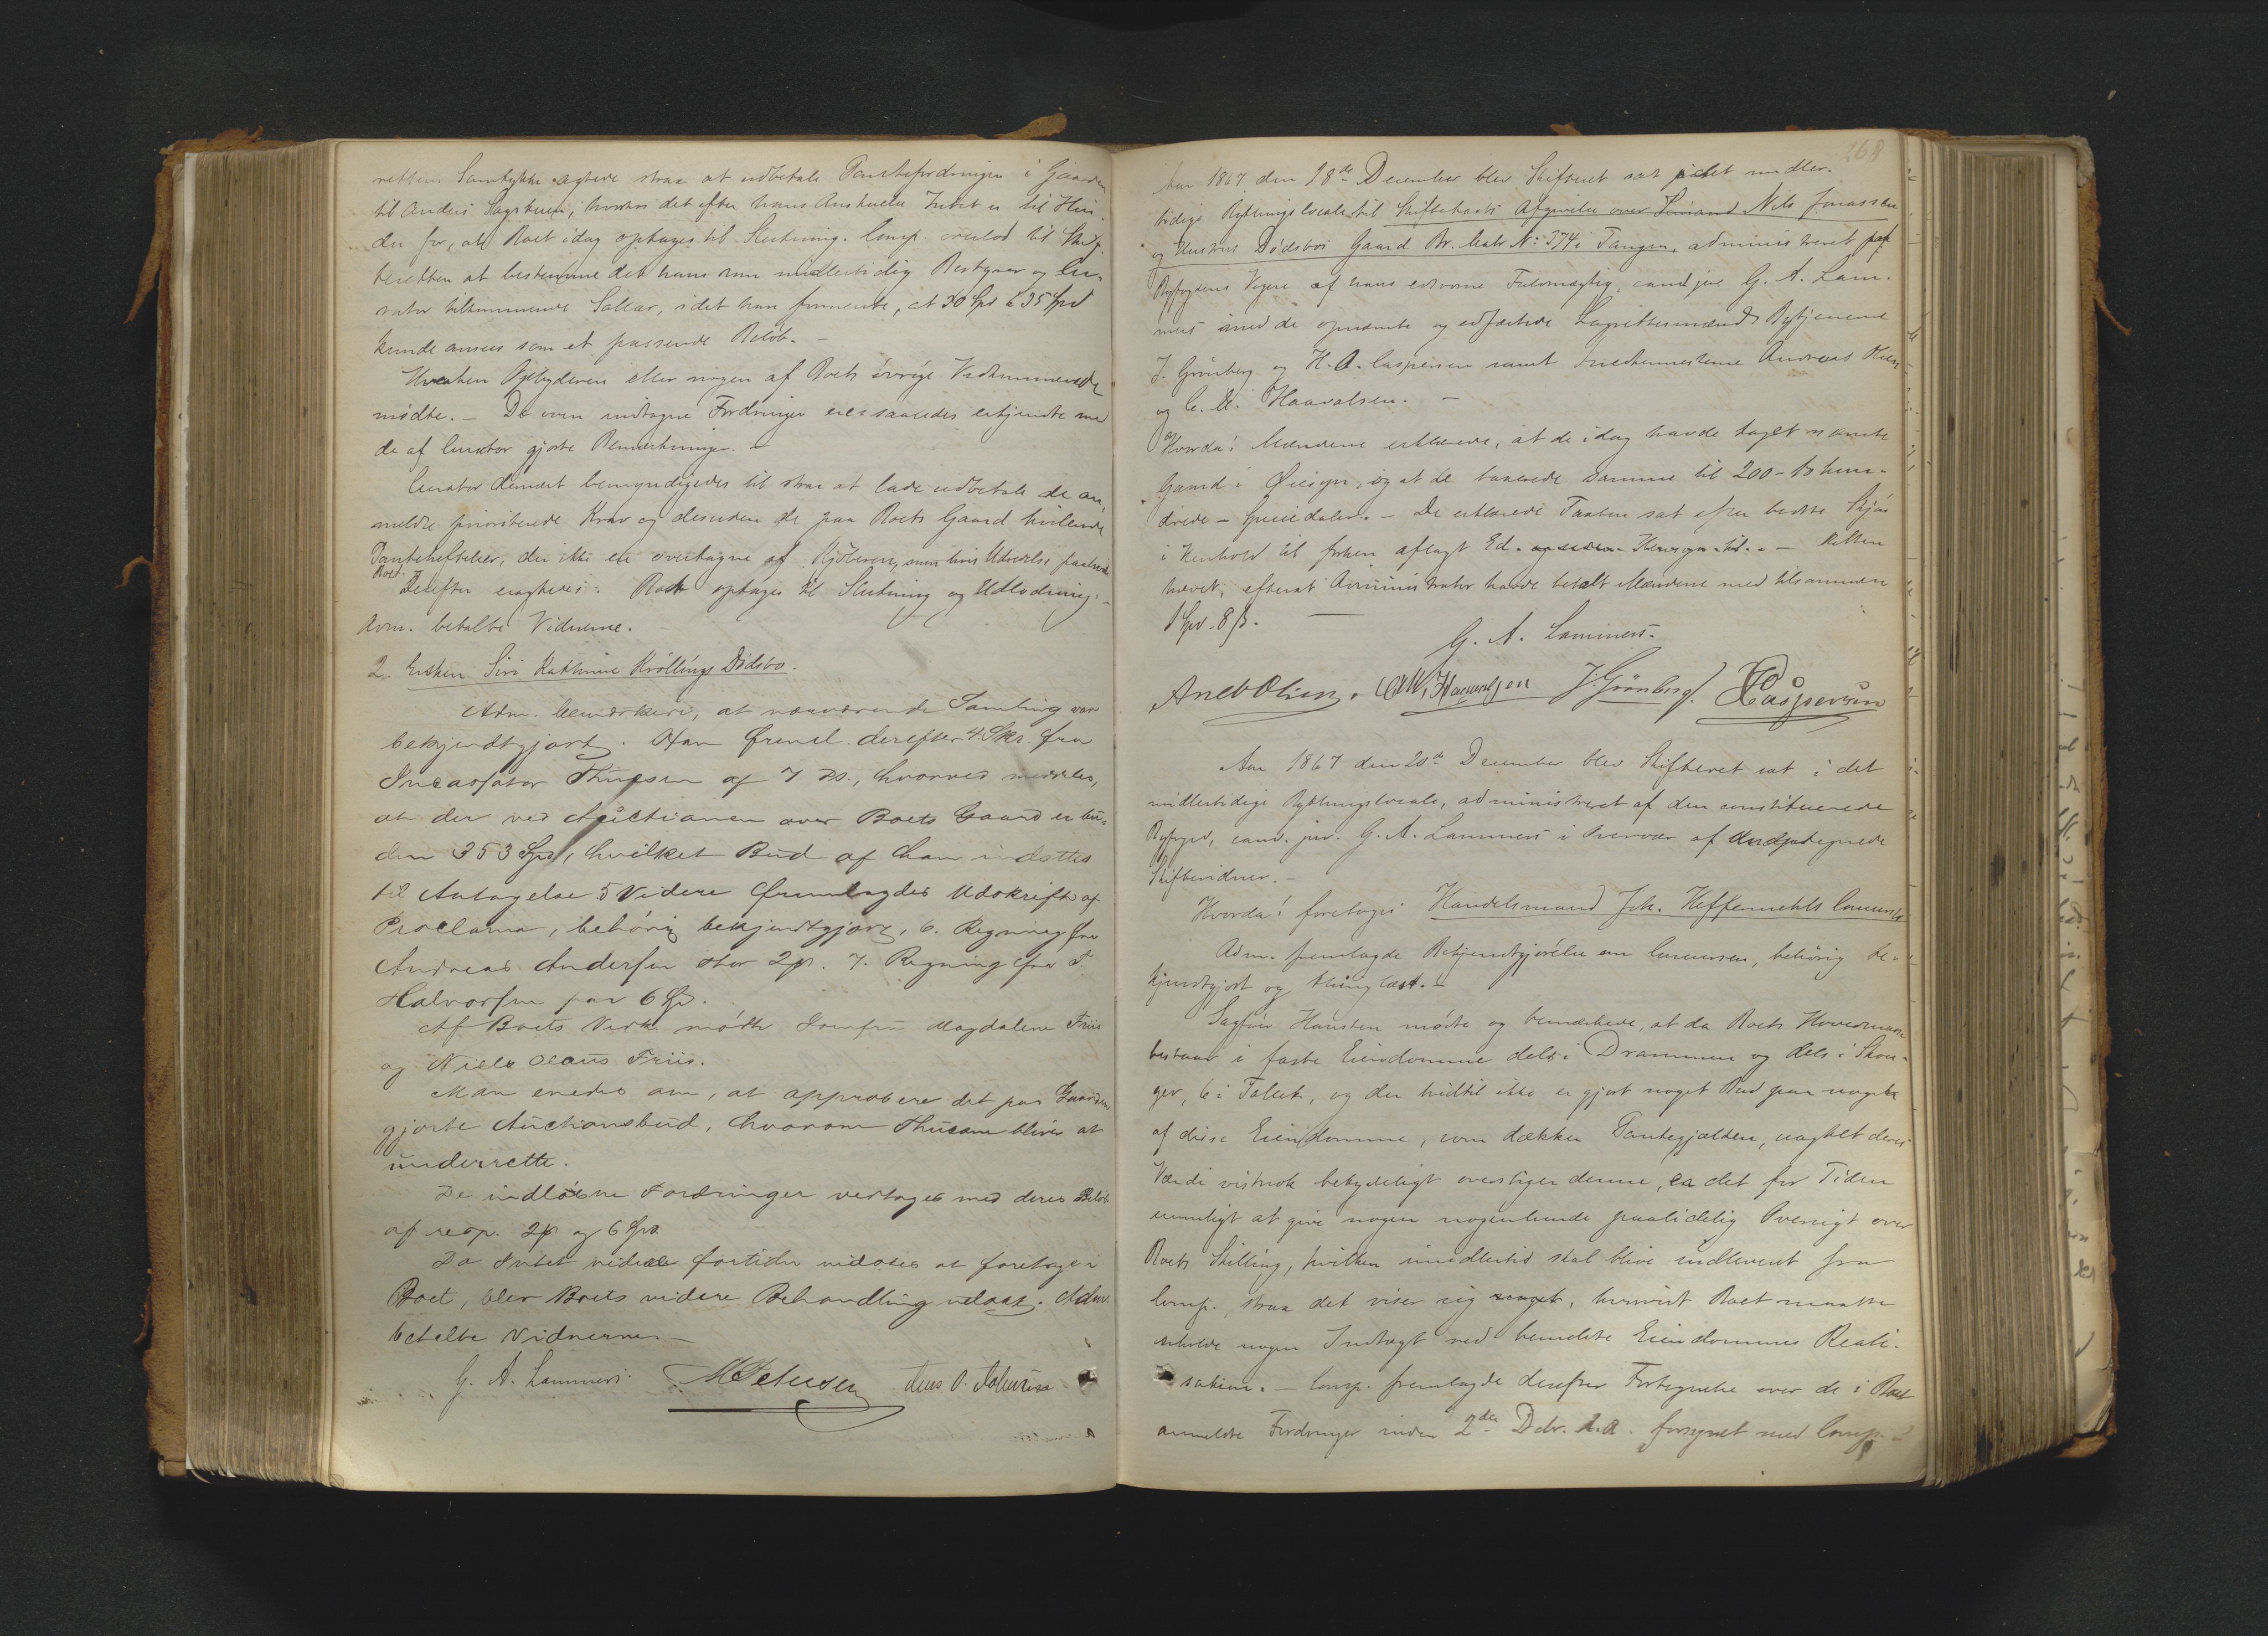 rettens Samtykke agtede strax at udbetale Pantefordringen i Gaarden
til Anders Sagstuen, hvorhos det efter hans Anskuelse Intet er til Hin-
der for, at Boet idag optages til Slutning. Comp. overlod til Skif-
teretten at bestemme det ham som midlertidig Bestyrer og Cu-
rator tilkommende Sallar, idet han formente, at 30 Spd à 35 Spd
kunde ansees som et passende Beløb. -
Hverken Opbyderen eller nogen af Boets øvrige Vedkommende
mødte. - De oven indtagne Fordringer ere saaledes erkjendte med
de af Curator gjorte Bemærkninger. -
Curator dernæst bemyndigedes til strax at lade udbetale de an-
meldte prioriterede Krav og desuden de paa Boets Gaard hvilende
Panteheftelser, der ikke er overtagne af Kjøberen, men hvis Udredelse paahviler
Boet.
Derefter eragtedes: Boet optages til Slutning og Udlodning. -
Adm. betalte Vidnerne.
2. Enken Siri Kathrine Krøllings Dødsbo.
Adm. bemærkede, at nærværende Samling var
bekjendtgjort. Han freml. derefter 4. Skr. fra
Incassator Thuesen af 7 ds., hvorved meddeles,
at der ved Auctionen over Boets Gaard er bu-
den 353 Spd, hvilket Bud af ham indsttes
til Antagelse 5 Videre fremlagdes Udskrift af
Proclama, behørig bekjendtgjort, 6. Regning fra
Andreas Andersen stor 2 . 7. Regning fra T.
Halvorsen paa 6 Spd.
Af Boets Vedk. mødte Jomfru Magdalene Friis
og Niels Olaus Friis.
Man enedes om, at approbere det paa Gaarden
gjorte Auctionsbud, hvorom Thuesen bliver at
underrette.
De indløbne Fordringer vedtages med deres Beløb
af resp. 2 og 6 Spd.
Da Intet videre fortiden vidstes at foretage i
Boet, blev Boets videre Behandling udsat. Adm.
betalte Vidnerne. -
G. A. Lammers. M Petersen Jens O. Johnsen
268
Aar 1867 den 18de December blev Skifteret sat i det midler-
tidige Rythingslocale til Skiftetaxts Afgivelse over Sømand Nils Jonassen
og Hustrus Dødsbos Gaard Br. Matr. No 374 i Tangen, administreret
Byfogdens Vegne af hans edsvorne Fuldmægtig, cand. jur. G. A. Lam-
mers med de opnævnte og edfæstede Lagrettesmænd Bytjenerne
J. Grønberg og H. O. Caspersen samt Snedkermesterne Andreas Olsen
og C. M. Haavalsen. -
Hvorda: Mændene erklærede, at de idag havde taget nævnte
Gaard i Øiesyn, og at de taxerede samme til 200 - to hun-
drede - Speciedaler. - De erklærede Taxten sat efter bedste Skjøn
i Henhold til forhen aflagt Ed. - Retten
hævet, efterat Administrator havde betalt Mændene med tilsammen
1 Spd. 8 ß. -
G. A. Lammers.
And Olsen. CM Haavalsen J. Grønberg. HO Caspersen
Aar 1867 den 20de December blev Skifteret sat i det
midlertidige Rythingslocale, administreret af den constituerede
Byfoged, cand. jur. G. A. Lammers i Overvær af undertegnede
Skiftevidner. -
Hvorda: foretoges Handelsmand Joh. Heffermehls Concursbo
Adm. fremlagde Bekjendtgjørelse om Concursen, behørig be-
kjendtgjort og thinglæst. -
Sagfører Hansteen mødte og bemærkede, at da Boets Hovedmasse
bestaar i faste Eiendomme dels i Drammen og dels i Skou-
ger, 6 i Tallet, og der hidtil ikke er gjort noget Bud paa nogen
af disse Eiendomme, som dækker Pantegjælden, uagtet deres
Værdi vistnok betydeligt overstiger denne, er det for Tiden
umuligt at give nogen nogenlunde paalidelig Oversigt over
Boets Stilling, hvilken imidlertid skal blive indleveret fra
Comp. strax det viser sig , hvorvidt Boet maatte
erholde nogen Indtægt ved bemeldte Eiendommes Reali-
sation. - Comp. fremlagde derefter Fortegnelse over de i Boet
anmeldte Fordringer inden 2den Debr. d. A. forsynet med Comp.